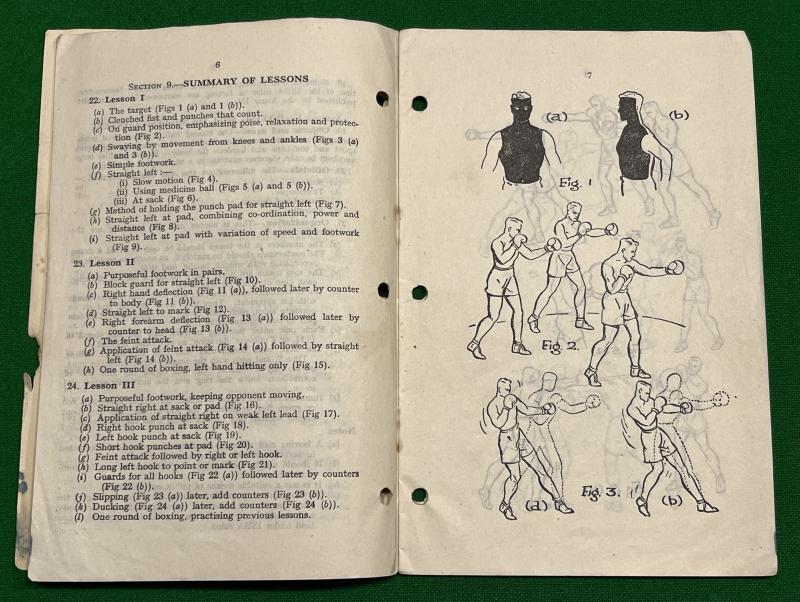 6
SECTION 9.—SUMMARY OF LESSONS
22. Lesson I
(a) The target (Figs 1 (a) and 1 (b)).
(b) Clenched fist and punches that count.
(c) On guard position, emphasizing poise, relaxation and protec-
tion (Fig 2).
(d) Swaying by movement from knees and ankles (Figs 3 (a)
and 3 (b)).
(e) Simple footwork.
(f) Straight left :—
(i) Slow motion (Fig 4).
(ii) Using medicine ball (Figs 5 (a) and 5 (b)).
(iii) At sack (Fig 6).
(g) Method of holding the punch pad for straight left (Fig 7).
(h) Straight left at pad, combining co-ordination, power and
distance (Fig 8).
(i) Straight left at pad with variation of speed and footwork
(Fig 9).
23. Lesson II
(a) Purposeful footwork in pairs.
(b) Block guard for straight left (Fig 10).
(c) Right hand deflection (Fig 11 (a)), followed later by counter
to body (Fig 11 (b)).
(d) Straight left to mark (Fig 12).
(e) Right forearm deflection (Fig 13 (a)) followed later by
counter to head (Fig 13 (b)).
(f) The feint attack.
(g) Application of feint attack (Fig 14 (a)) followed by straight
left (Fig 14 (b)).
(h) One round of boxing, left hand hitting only (Fig 15).
24. Lesson III
(a) Purposeful footwork, keeping opponent moving.
(b) Straight right at sack or pad (Fig 16).
(c) Application of straight right on weak left lead (Fig 17).
(d) Right hook punch at sack (Fig 18).
(e) Left hook punch at sack (Fig 19).
(f) Short hook punches at pad (Fig 20).
(g) Feint attack followed by right or left hook.
(h) Long left hook to point or mark (Fig 21).
(i) Guards for all hooks (Fig 22 (a)) followed later by counters
(Fig 22 (b)).
(j) Slipping (Fig 23 (a)) later, add counters (Fig 23 (b)).
(k) Ducking (Fig 24 (a)) later, add counters (Fig 24 (b)).
(l) One round of boxing, practising previous lessons.
7
(a)
(b)
Fig. 1
Fig. 2.
Fig. 3.
(a)
(b)